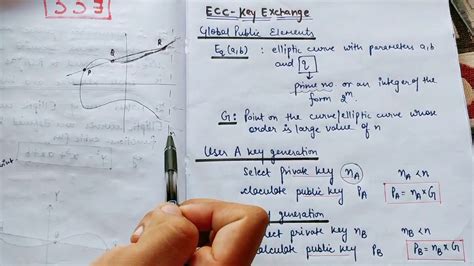 ECC - Key Exchange
Global Public Elements
Eq(a,b) : elliptic curve with parameters a,b
and q
prime no or an integer of the
form 2^m.
G: Point on the curve/elliptic curve whose
order is large value of n
User A key generation
Select private key nA nA < n
Calculate public key PA PA = nA × G
key generation
select private key nB nB < n
calculate public key PB PB = nB × G
P
Q